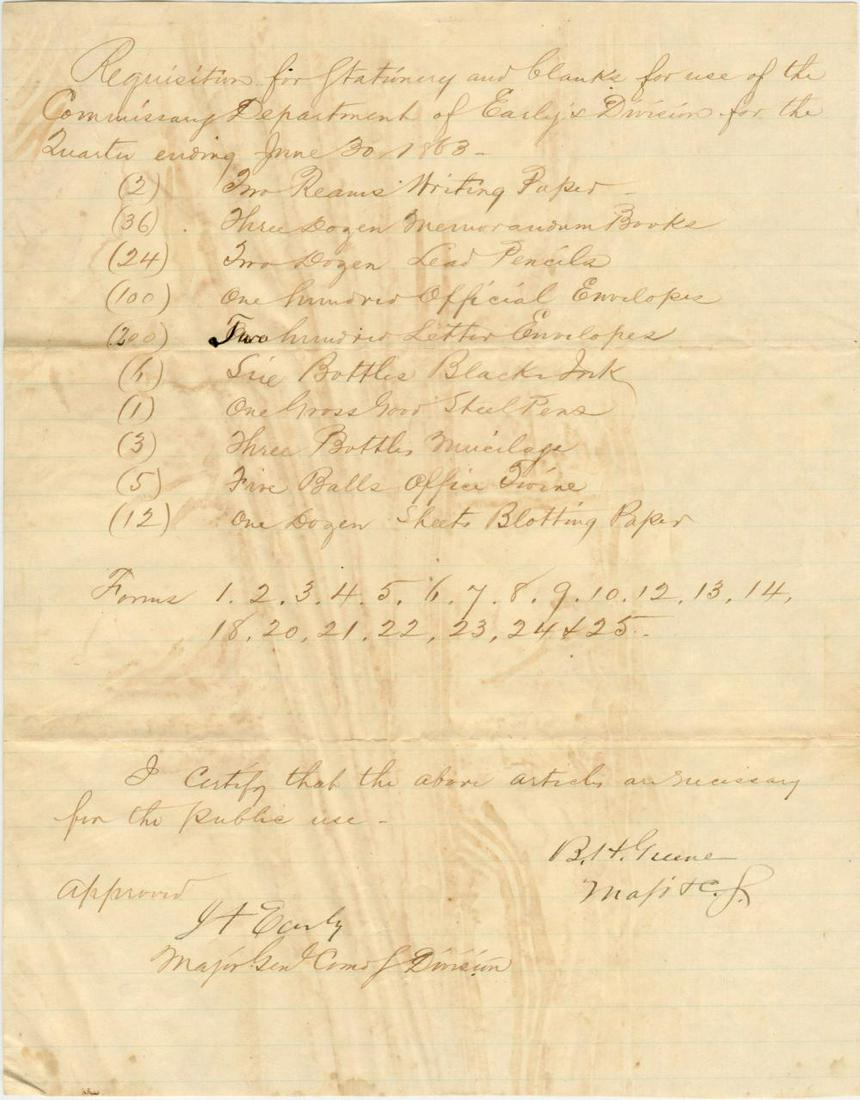 Requisition for Stationery and blanks for use of the
Commissary Department of Early's Division for the
Quarter ending June 30 1863 -
(2) Two Reams Writing Paper -
(36) . Three Dozen Memorandum Books
(24) Two Dozen Lead Pencils
(100) One hundred Official Envelopes
(200) Two hundred Letter Envelopes
(6) Six Bottles Black Ink
(1) One Gross Good Steel Pens
(3) Three Bottles Mucilage
(5) Five Balls Office Twine
(12) One Dozen Sheets Blotting Paper
Forms 1. 2. 3. 4. 5. 6. 7. 8. 9. 10. 12. 13. 14,
18. 20, 21. 22, 23, 24 & 25.
I certify that the above articles are necessary
for the public use -
B. H. Greene
Maj & C. S.
Approved
J A Early
Major Genl Comdg Division